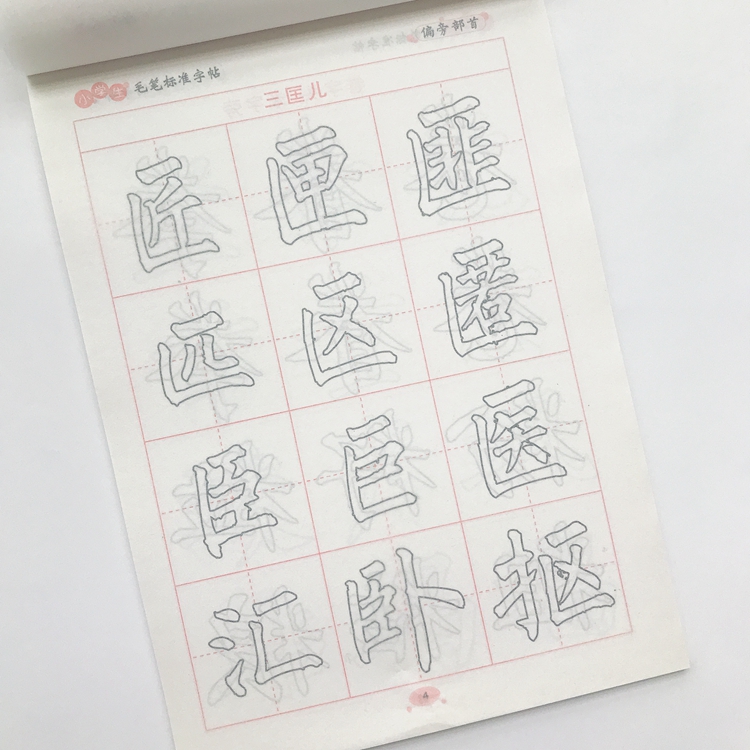 小学生 毛笔标准字帖 偏旁部首
三匡儿
匠 匣 匪
匹 区 匿
臣 巨 医
汇 卧 抠
4